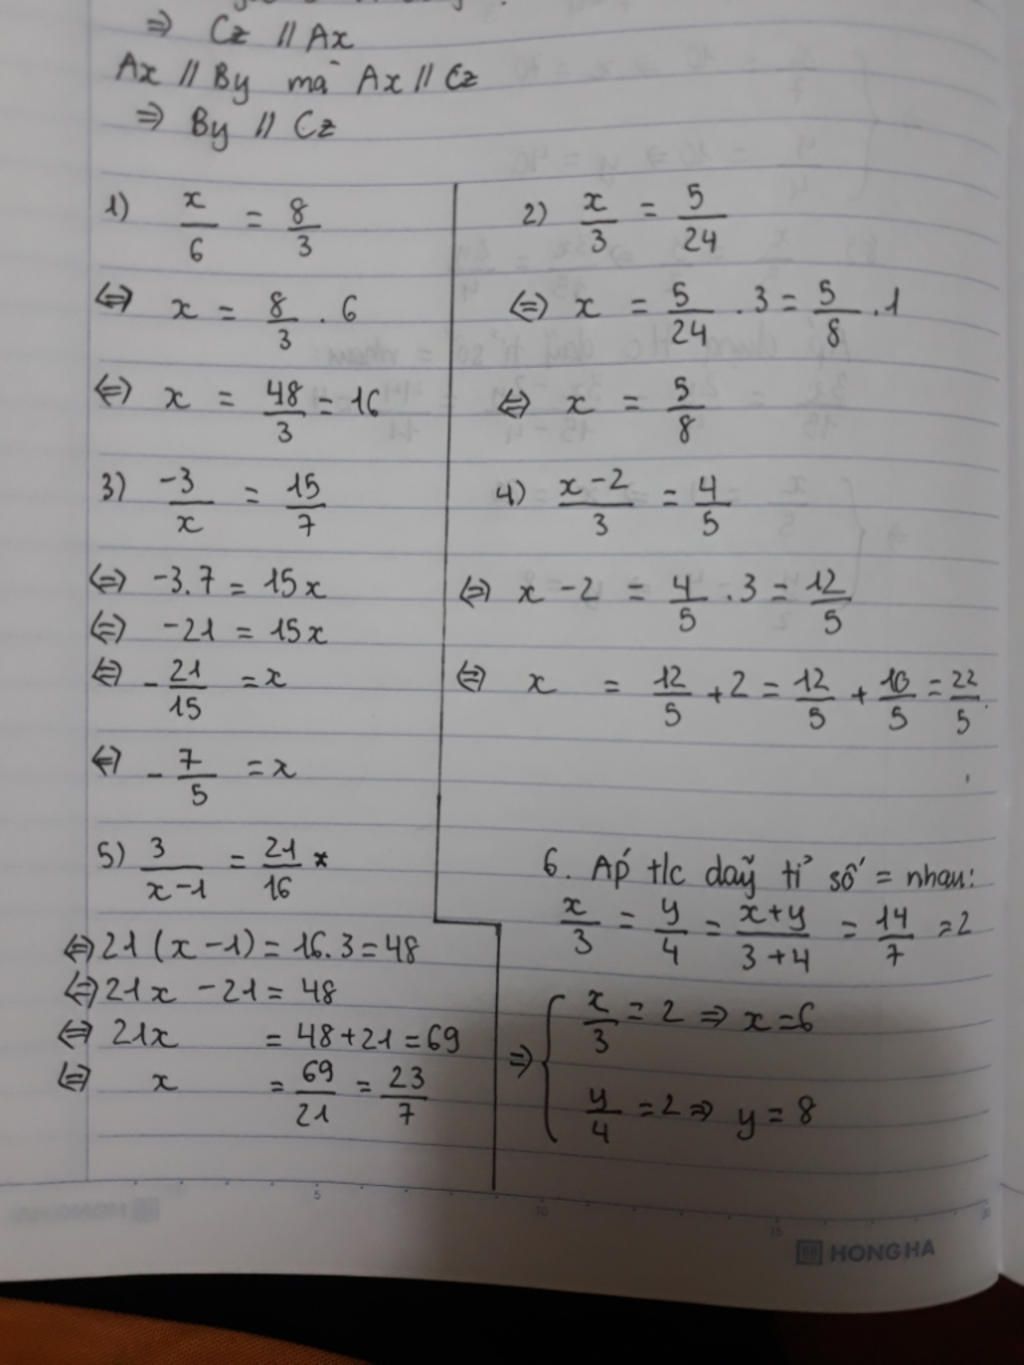 ⇒ Cz // Ax
Ax // By mà Ax // Cz
⇒ By // Cz
1) x/6 = 8/3
⇔ x = 8/3 . 6
⇔ x = 48/3 = 16
2) x/3 = 5/24
⇔ x = 5/24 . 3 = 5/8 . 1
⇔ x = 5/8
3) -3/x = 15/7
⇔ -3.7 = 15x
⇔ -21 = 15x
⇔ -21/15 = x
⇔ -7/5 = x
4) x-2/3 = 4/5
⇔ x - 2 = 4/5 . 3 = 12/5
⇔ x = 12/5 + 2 = 12/5 + 10/5 = 22/5
5) 3/x-1 = 21/16 *
⇔ 21(x - 1) = 16.3 = 48
⇔ 21x - 21 = 48
⇔ 21x = 48 + 21 = 69
⇔ x = 69/21 = 23/7
6. Áp t/c daỹ tỉ số = nhau:
x/3 = y/4 = x+y/3+4 = 14/7 = 2
⇒ { x/3 = 2 ⇒ x = 6
y/4 = 2 ⇒ y = 8
5 10 15 20
HONG HA